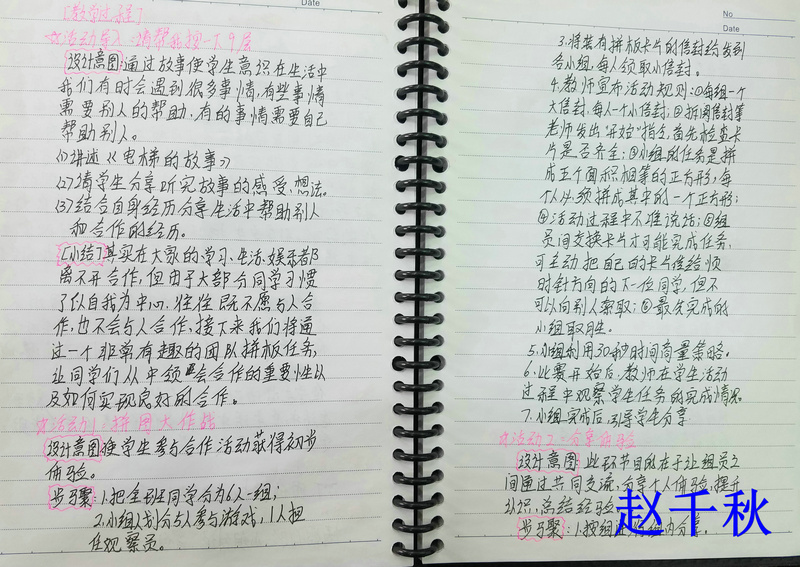 Date
[教学过程]
☆活动导入:请帮我按一下9层
设计意图:通过故事使学生意识在生活中
我们有时会遇到很多事情,有些事情
需要别人的帮助,有的事情需要自己
帮助别人。
(1)讲述《电梯的故事》
(2)请学生分享听完故事的感受、想法。
(3)结合自身经历分享生活中帮助别人
和合作的经历。
[小结]其实在大家的学习、生活、娱乐都
离不开合作,但由于大部分同学习惯
了以自我为中心,往往既不愿与人合
作,也不会与人合作,接下来我们将通
过一个非常有趣的团队拼板任务,
让同学们从中领会合作的重要性以
及如何实现良好的合作。
☆活动1:拼图大作战
设计意图:使学生参与合作活动获得初步
体验。
步骤:1.把全班同学分为6人一组;
2.小组划分5人参与游戏,1人担
任观察员。
No
Date
3.将装有拼板卡片的信封给发到
各小组,每人领取小信封。
4.教师宣布活动规则:①每组一个
大信封,每人一个小信封;②拆阅信封等
老师发出"开始"指令,首先检查卡
片是否齐全;③小组的任务是拼
成五个面积相等的正方形,每
个人必须拼成其中的一个正方形;
④活动过程中不准说话;⑤组
员间交换卡片才可能完成任务,
可主动把自己的卡片传给顺
时针方向的下一位同学,但不
可以向别人索取;⑥最先完成的
小组取胜。
5.小组利用30秒时间商量策略。
6.比赛开始后,教师在学生活动
过程中观察学生任务的完成情况。
7.小组完成后,引导学生分享
☆活动2:分享体验
设计意图:此环节目的在于让组员之
间通过共同交流,分享个人体验,提升
认识,总结经验
步骤:1.按组 组内分享。
赵千秋